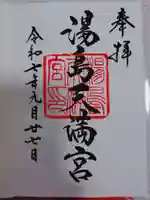 奉拝
湯島天満宮
令和七年元月廿七日